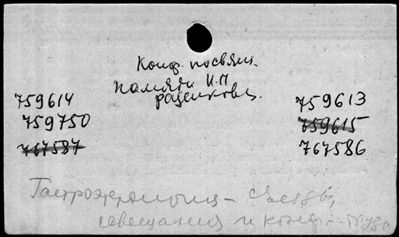 Конф. посвящ.
памяти И.П
Разенкова.
759614
759750
767587
759613
759615
767586
Гастроэтерология - Съезды,
совещания и конф. - Труды